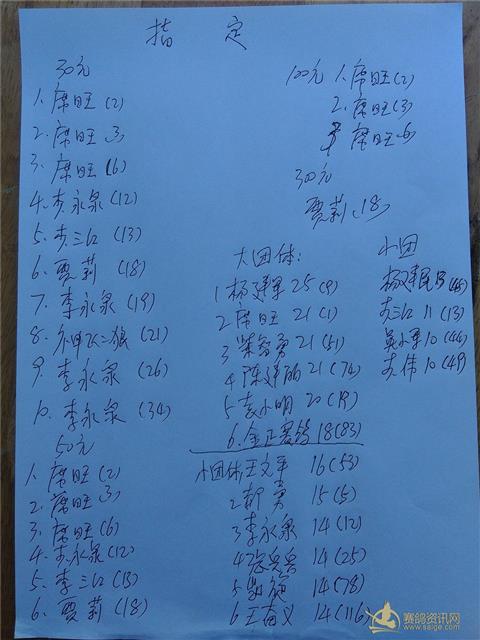 指定
30元
1. 席旺 (2)
2. 席旺 3)
3. 席旺 (6)
4. 李永泉 (12)
5. 李三江 (13)
6. 贾莉 (18)
7. 李永泉 (19)
8. 神飞二狼 (21)
9. 李永泉 (26)
10. 李永泉 (34)
50元
1. 席旺 (2)
2. 席旺 3)
3. 席旺 (6)
4. 李永泉 (12)
5. 李三江 (13)
6. 贾莉 (18)
100元 1. 席旺 (2)
2. 席旺 (3)
3 席旺 6)
300元
贾莉 (18)
大团体:
1 杨建军 25 (9)
2 席旺 21 (1)
3 柴智勇 21 (51)
4 陈建 21 (74)
5 袁小明 20 (19)
6. 金正赛鸽 18 (83)
小团体 1 王文平 16 (53)
2 靳勇 15 (5)
3 李永泉 14 (12)
4 14 (25)
5 14 (78)
6 王奋义 14 (116)
小团
杨建民 13 (45)
李三江 11 (13)
吴小军 10 (44)
李伟 10 (49)
赛鸽资讯网
www.saige.com